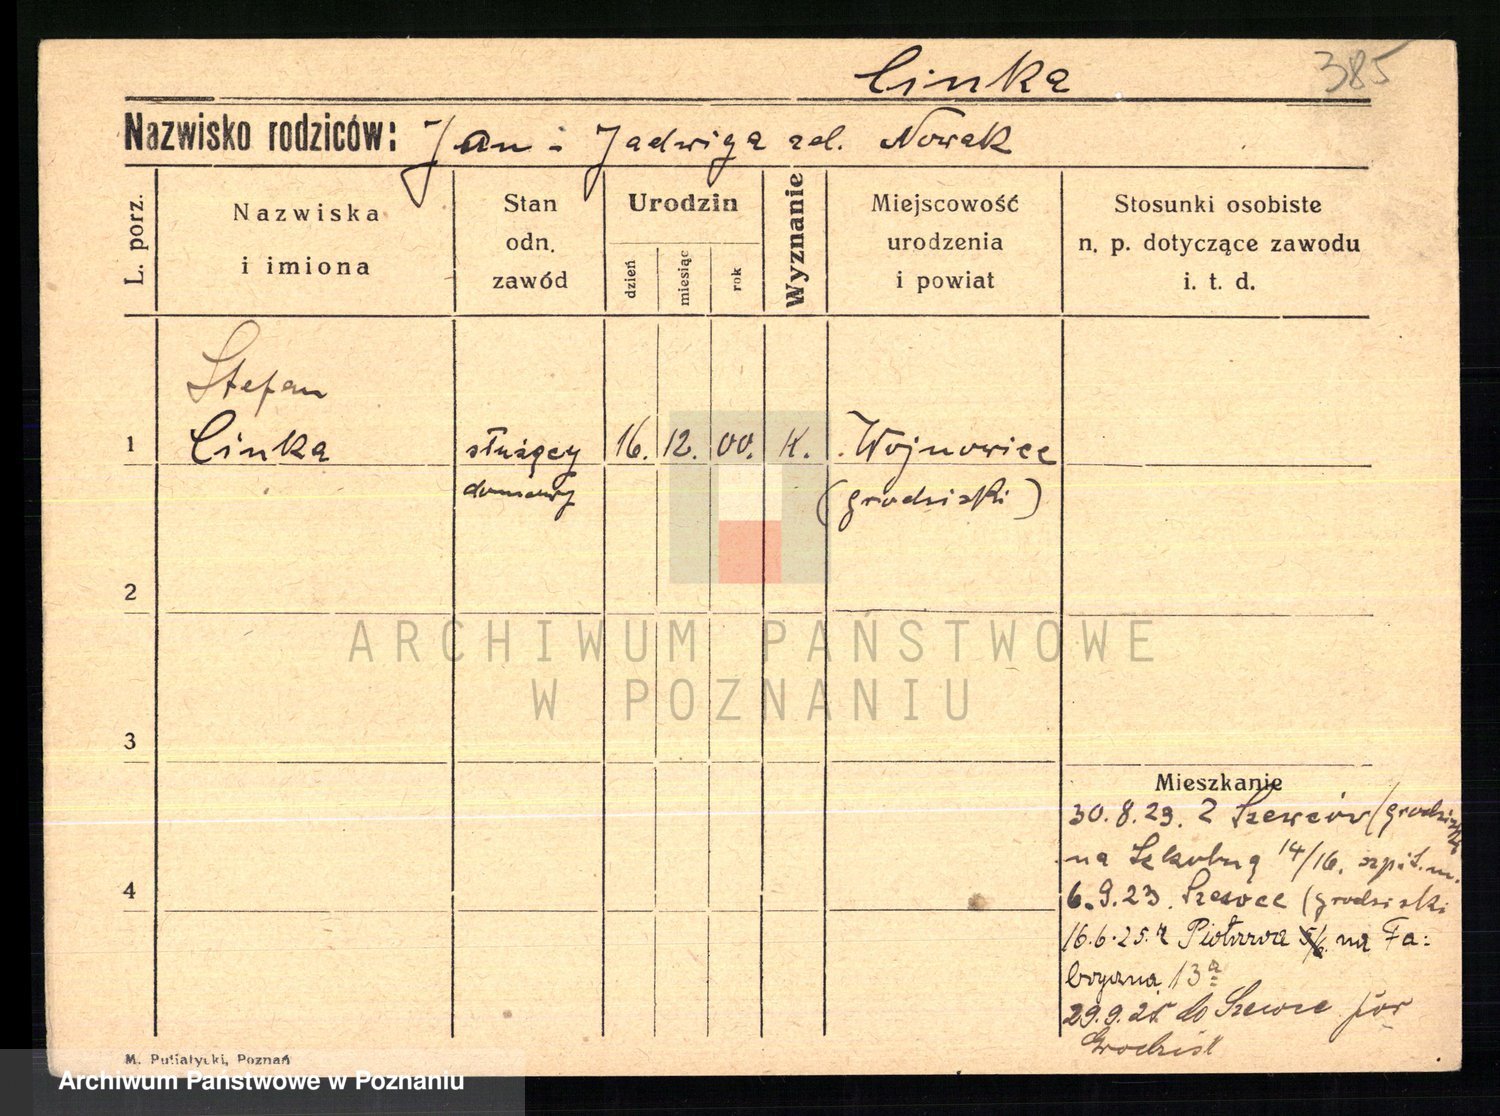 Cinka
385
Nazwisko rodziców: Jan i Jadwiga zd. Nowak
L. porz.
Nazwiska
i imiona
Stan
odn.
zawód
Urodzin
dzień
miesiąc
rok
Wyznanie
Miejscowość
urodzenia
i powiat
Stosunki osobiste
n. p. dotyczące zawodu
i. t. d.
Stefan
1 Cinka służący 16. 12. 00. K. Wojnowice
domowy (grodziski)
2
ARCHIWUM PAŃSTWOWE
W POZNANIU
3
Mieszkanie
30.8.23. Z Szewców (grodziski
na Szkolną 14/16. szpit. m.
4
6.9.23. Szewce (grodziski
16.6.25. z Piotrowa na Fa-
bryczna 13a
29.9.25 do Szewce pow
Grodzisk
M. Putiatycki, Poznań
Archiwum Państwowe w Poznaniu